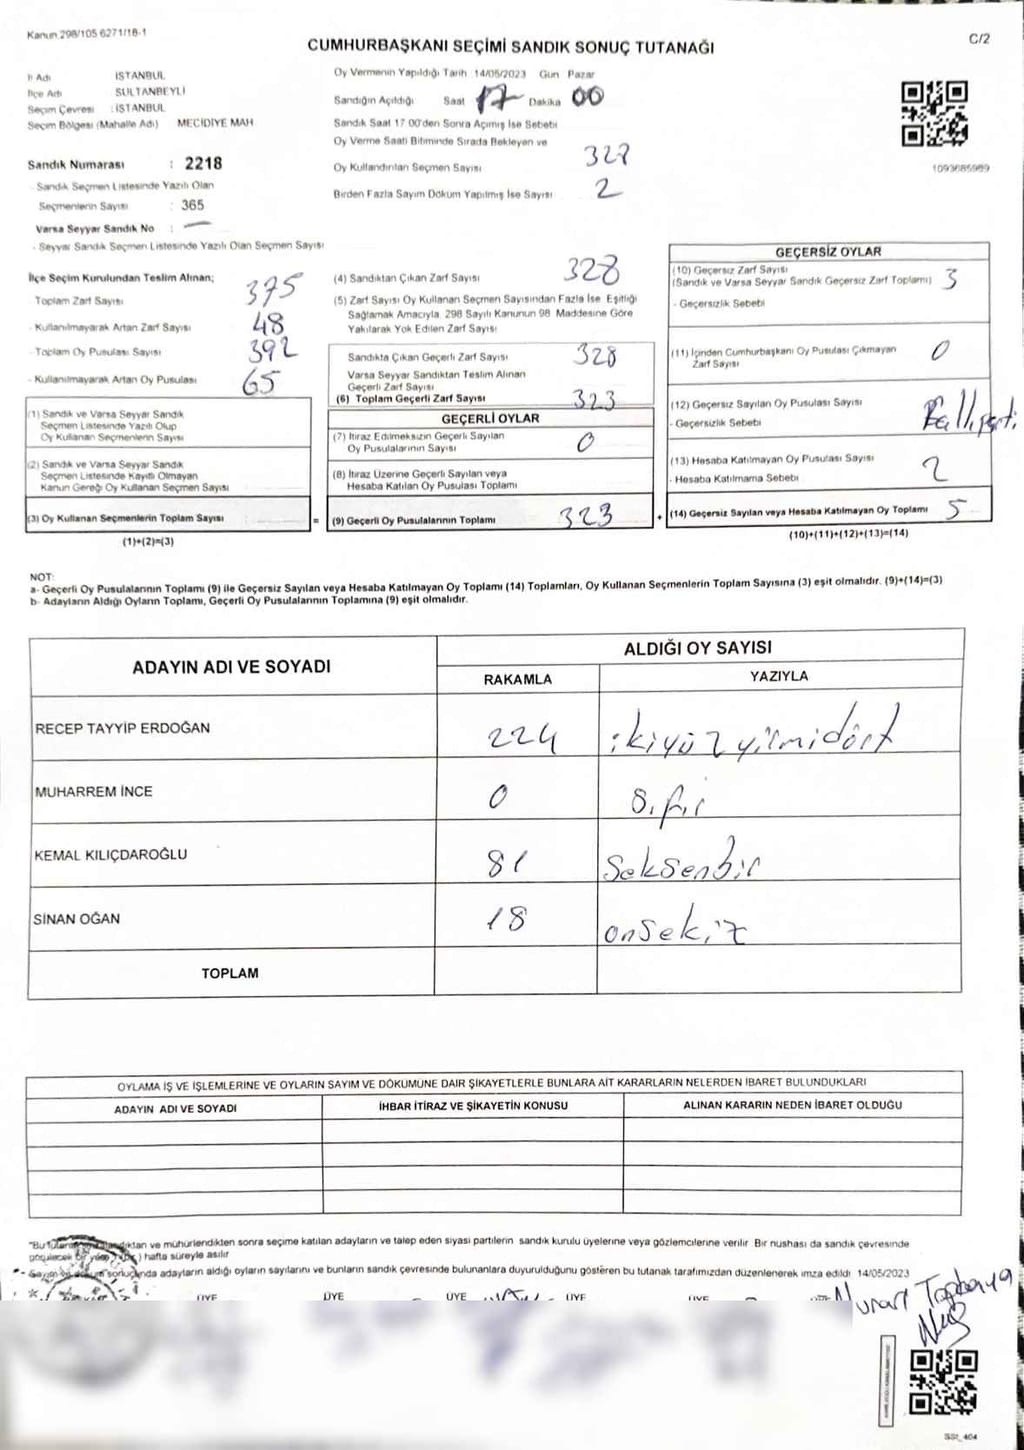 Kanun 298/105 6271/16-1
C/2
CUMHURBAŞKANI SEÇİMİ SANDIK SONUÇ TUTANAĞI
İl Adı İSTANBUL
İlçe Adı SULTANBEYLİ
Seçim Çevresi : İSTANBUL
Seçim Bölgesi (Mahalle Adı) MECİDİYE MAH
Sandık Numarası : 2218
- Sandık Seçmen Listesinde Yazılı Olan
Seçmenlerin Sayısı : 365
Varsa Seyyar Sandık No :
- Seyyar Sandık Seçmen Listesinde Yazılı Olan Seçmen Sayısı
Oy Vermenin Yapıldığı Tarih 14/05/2023 Gün Pazar
Sandığın Açıldığı Saat 17 Dakika 00
Sandık Saat 17 00'den Sonra Açılmış İse Sebebi
Oy Verme Saati Bitiminde Sırada Bekleyen ve
Oy Kullandırılan Seçmen Sayısı 327
Birden Fazla Sayım Döküm Yapılmış İse Sayısı 2
1093685989
İlçe Seçim Kurulundan Teslim Alınan;
Toplam Zarf Sayısı 375
- Kullanılmayarak Artan Zarf Sayısı 48
- Toplam Oy Pusulası Sayısı 392
- Kullanılmayarak Artan Oy Pusulası 65
(1) Sandık ve Varsa Seyyar Sandık
Seçmen Listesinde Yazılı Olup
Oy Kullanan Seçmenlerin Sayısı
(2) Sandık ve Varsa Seyyar Sandık
Seçmen Listesinde Kayıtlı Olmayan
Kanun Gereği Oy Kullanan Seçmen Sayısı
(3) Oy Kullanan Seçmenlerin Toplam Sayısı =
(1)+(2)=(3)
(4) Sandıktan Çıkan Zarf Sayısı 328
(5) Zarf Sayısı Oy Kullanan Seçmen Sayısından Fazla İse Eşitliği
Sağlamak Amacıyla 298 Sayılı Kanunun 98 Maddesine Göre
Yakılarak Yok Edilen Zarf Sayısı
Sandıkta Çıkan Geçerli Zarf Sayısı 328
Varsa Seyyar Sandıktan Teslim Alınan
Geçerli Zarf Sayısı
(6) Toplam Geçerli Zarf Sayısı 323
GEÇERLİ OYLAR
(7) İtiraz Edilmeksizin Geçerli Sayılan
Oy Pusulalarının Sayısı 0
(8) İtiraz Üzerine Geçerli Sayılan veya
Hesaba Katılan Oy Pusulası Toplamı
(9) Geçerli Oy Pusulalarının Toplamı 323 +
GEÇERSİZ OYLAR
(10) Geçersiz Zarf Sayısı
(Sandık ve Varsa Seyyar Sandık Geçersiz Zarf Toplamı) 3
- Geçersizlik Sebebi
(11) İçinden Cumhurbaşkanı Oy Pusulası Çıkmayan
Zarf Sayısı 0
(12) Geçersiz Sayılan Oy Pusulası Sayısı
- Geçersizlik Sebebi
(13) Hesaba Katılmayan Oy Pusulası Sayısı 2
- Hesaba Katılmama Sebebi
(14) Geçersiz Sayılan veya Hesaba Katılmayan Oy Toplamı 5
(10)+(11)+(12)+(13)=(14)
NOT:
a- Geçerli Oy Pusulalarının Toplamı (9) ile Geçersiz Sayılan veya Hesaba Katılmayan Oy Toplamı (14) Toplamları, Oy Kullanan Seçmenlerin Toplam Sayısına (3) eşit olmalıdır. (9)+(14)=(3)
b- Adayların Aldığı Oyların Toplamı, Geçerli Oy Pusulalarının Toplamına (9) eşit olmalıdır.
ADAYIN ADI VE SOYADI
ALDIĞI OY SAYISI
RAKAMLA YAZIYLA
RECEP TAYYİP ERDOĞAN 224 ikiyüzyirmidört
MUHARREM İNCE 0 sıfır
KEMAL KILIÇDAROĞLU 81 Seksenbir
SİNAN OĞAN 18 onsekiz
TOPLAM
OYLAMA İŞ VE İŞLEMLERİNE VE OYLARIN SAYIM VE DÖKÜMÜNE DAİR ŞİKAYETLERLE BUNLARA AİT KARARLARIN NELERDEN İBARET BULUNDUKLARI
ADAYIN ADI VE SOYADI İHBAR İTİRAZ VE ŞİKAYETİN KONUSU ALINAN KARARIN NEDEN İBARET OLDUĞU
ve mühürlendikten sonra seçime katılan adayların ve talep eden siyasi partilerin sandık kurulu üyelerine veya gözlemcilerine verilir Bir nushası da sandık çevresinde
hafta süreyle asılır
adayların aldığı oyların sayılarını ve bunların sandık çevresinde bulunanlara duyurulduğunu gösteren bu tutanak tarafımızdan düzenlenerek imza edildi 14/05/2023
ÜYE ÜYE ÜYE ÜYE ÜYE
SSt_404